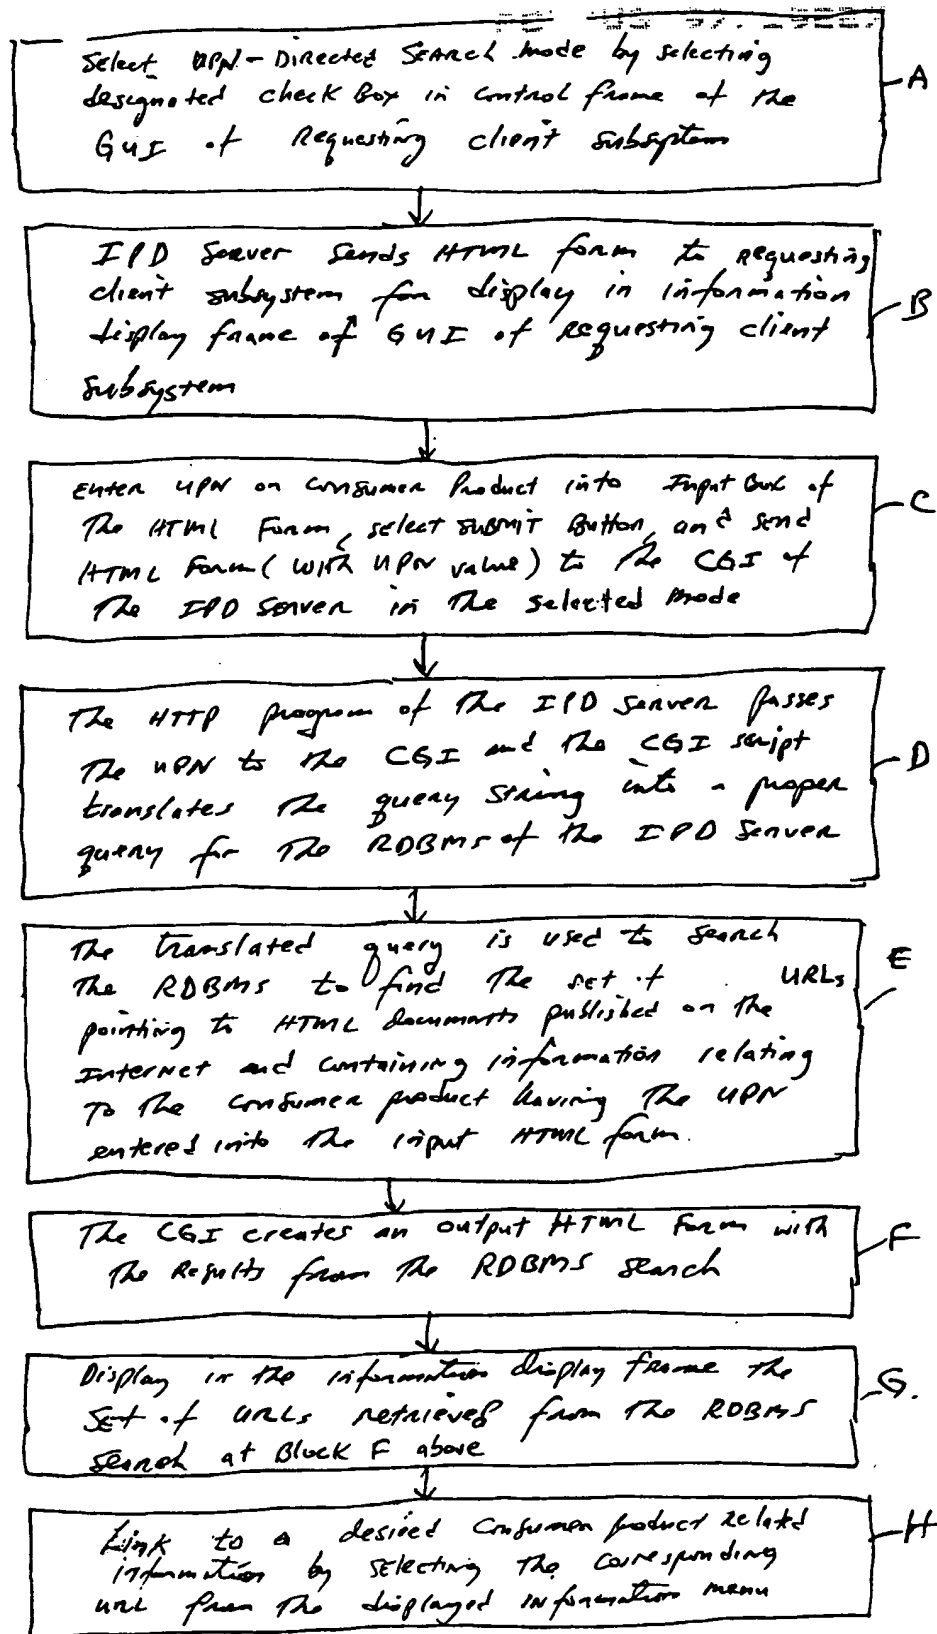 Select UPN-Directed Search mode by selecting
designated check Box in control frame of the
GUI of Requesting client subsystem
A
IPD Server sends HTML form to requesting
client subsystem for display in information
display frame of GUI of requesting client
subsystem
B
Enter UPN on Consumer Product into Input Box of
The HTML Form, select SUBMIT Button, and send
HTML Form (with UPN value) to the CGI of
The IPD Server in the selected mode
C
The HTTP program of the IPD Server passes
The UPN to the CGI and the CGI script
translates the query string into a proper
query for the RDBMS of the IPD Server
D
The translated query is used to search
The RDBMS to find the set of URLs
pointing to HTML documents published on the
Internet and containing information relating
To the consumer product having the UPN
entered into the input HTML form.
E
The CGI creates an output HTML Form with
The Results from the RDBMS search
F
Display in the information display frame the
Set of URLs retrieved from the RDBMS
search at Block F above
G.
Link to a desired consumer product related
information by selecting the corresponding
URL from the displayed information menu
H